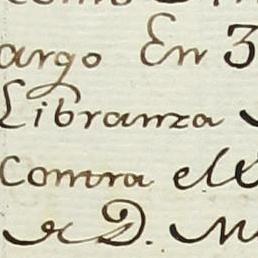 argo En 3
Libranza
Contra el
D. M